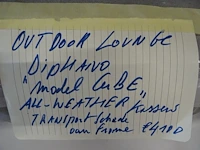 OUTDOOR LOUNGE
DIPHANO
"model CUBE"
ALL-WEATHER kussens
TRANSPORT schade
aan frame €4180